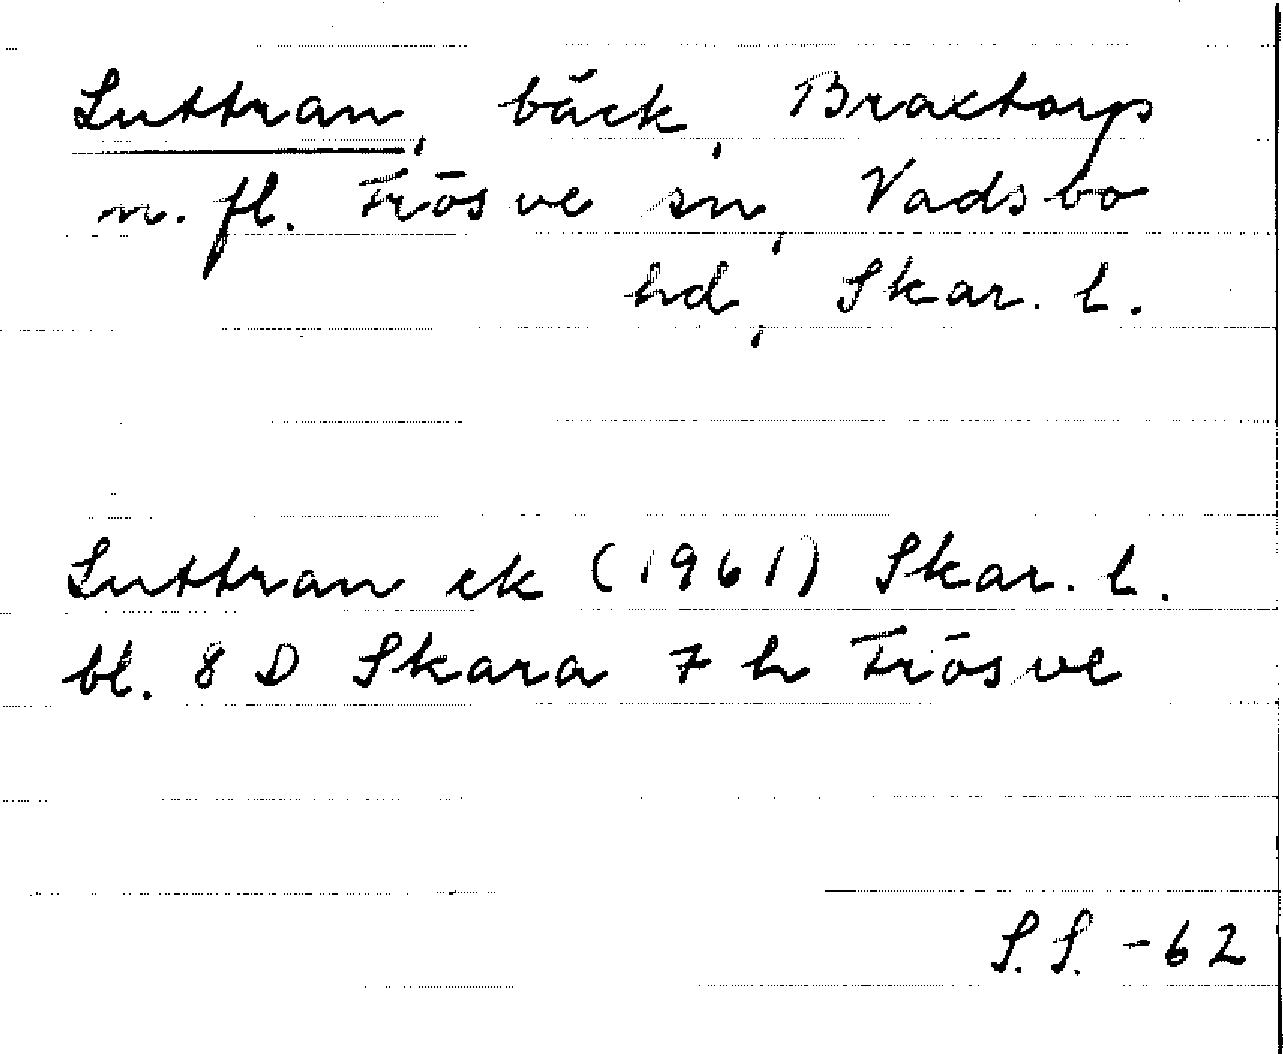 Luttran, bäck, Braxtorps
n. fl. Frösve sn, Vadsbo
hd, Skar. l.
Luttran ek (1961) Skar. l.
bl. 8 D Skara 7 h Frösve
S.S. -62